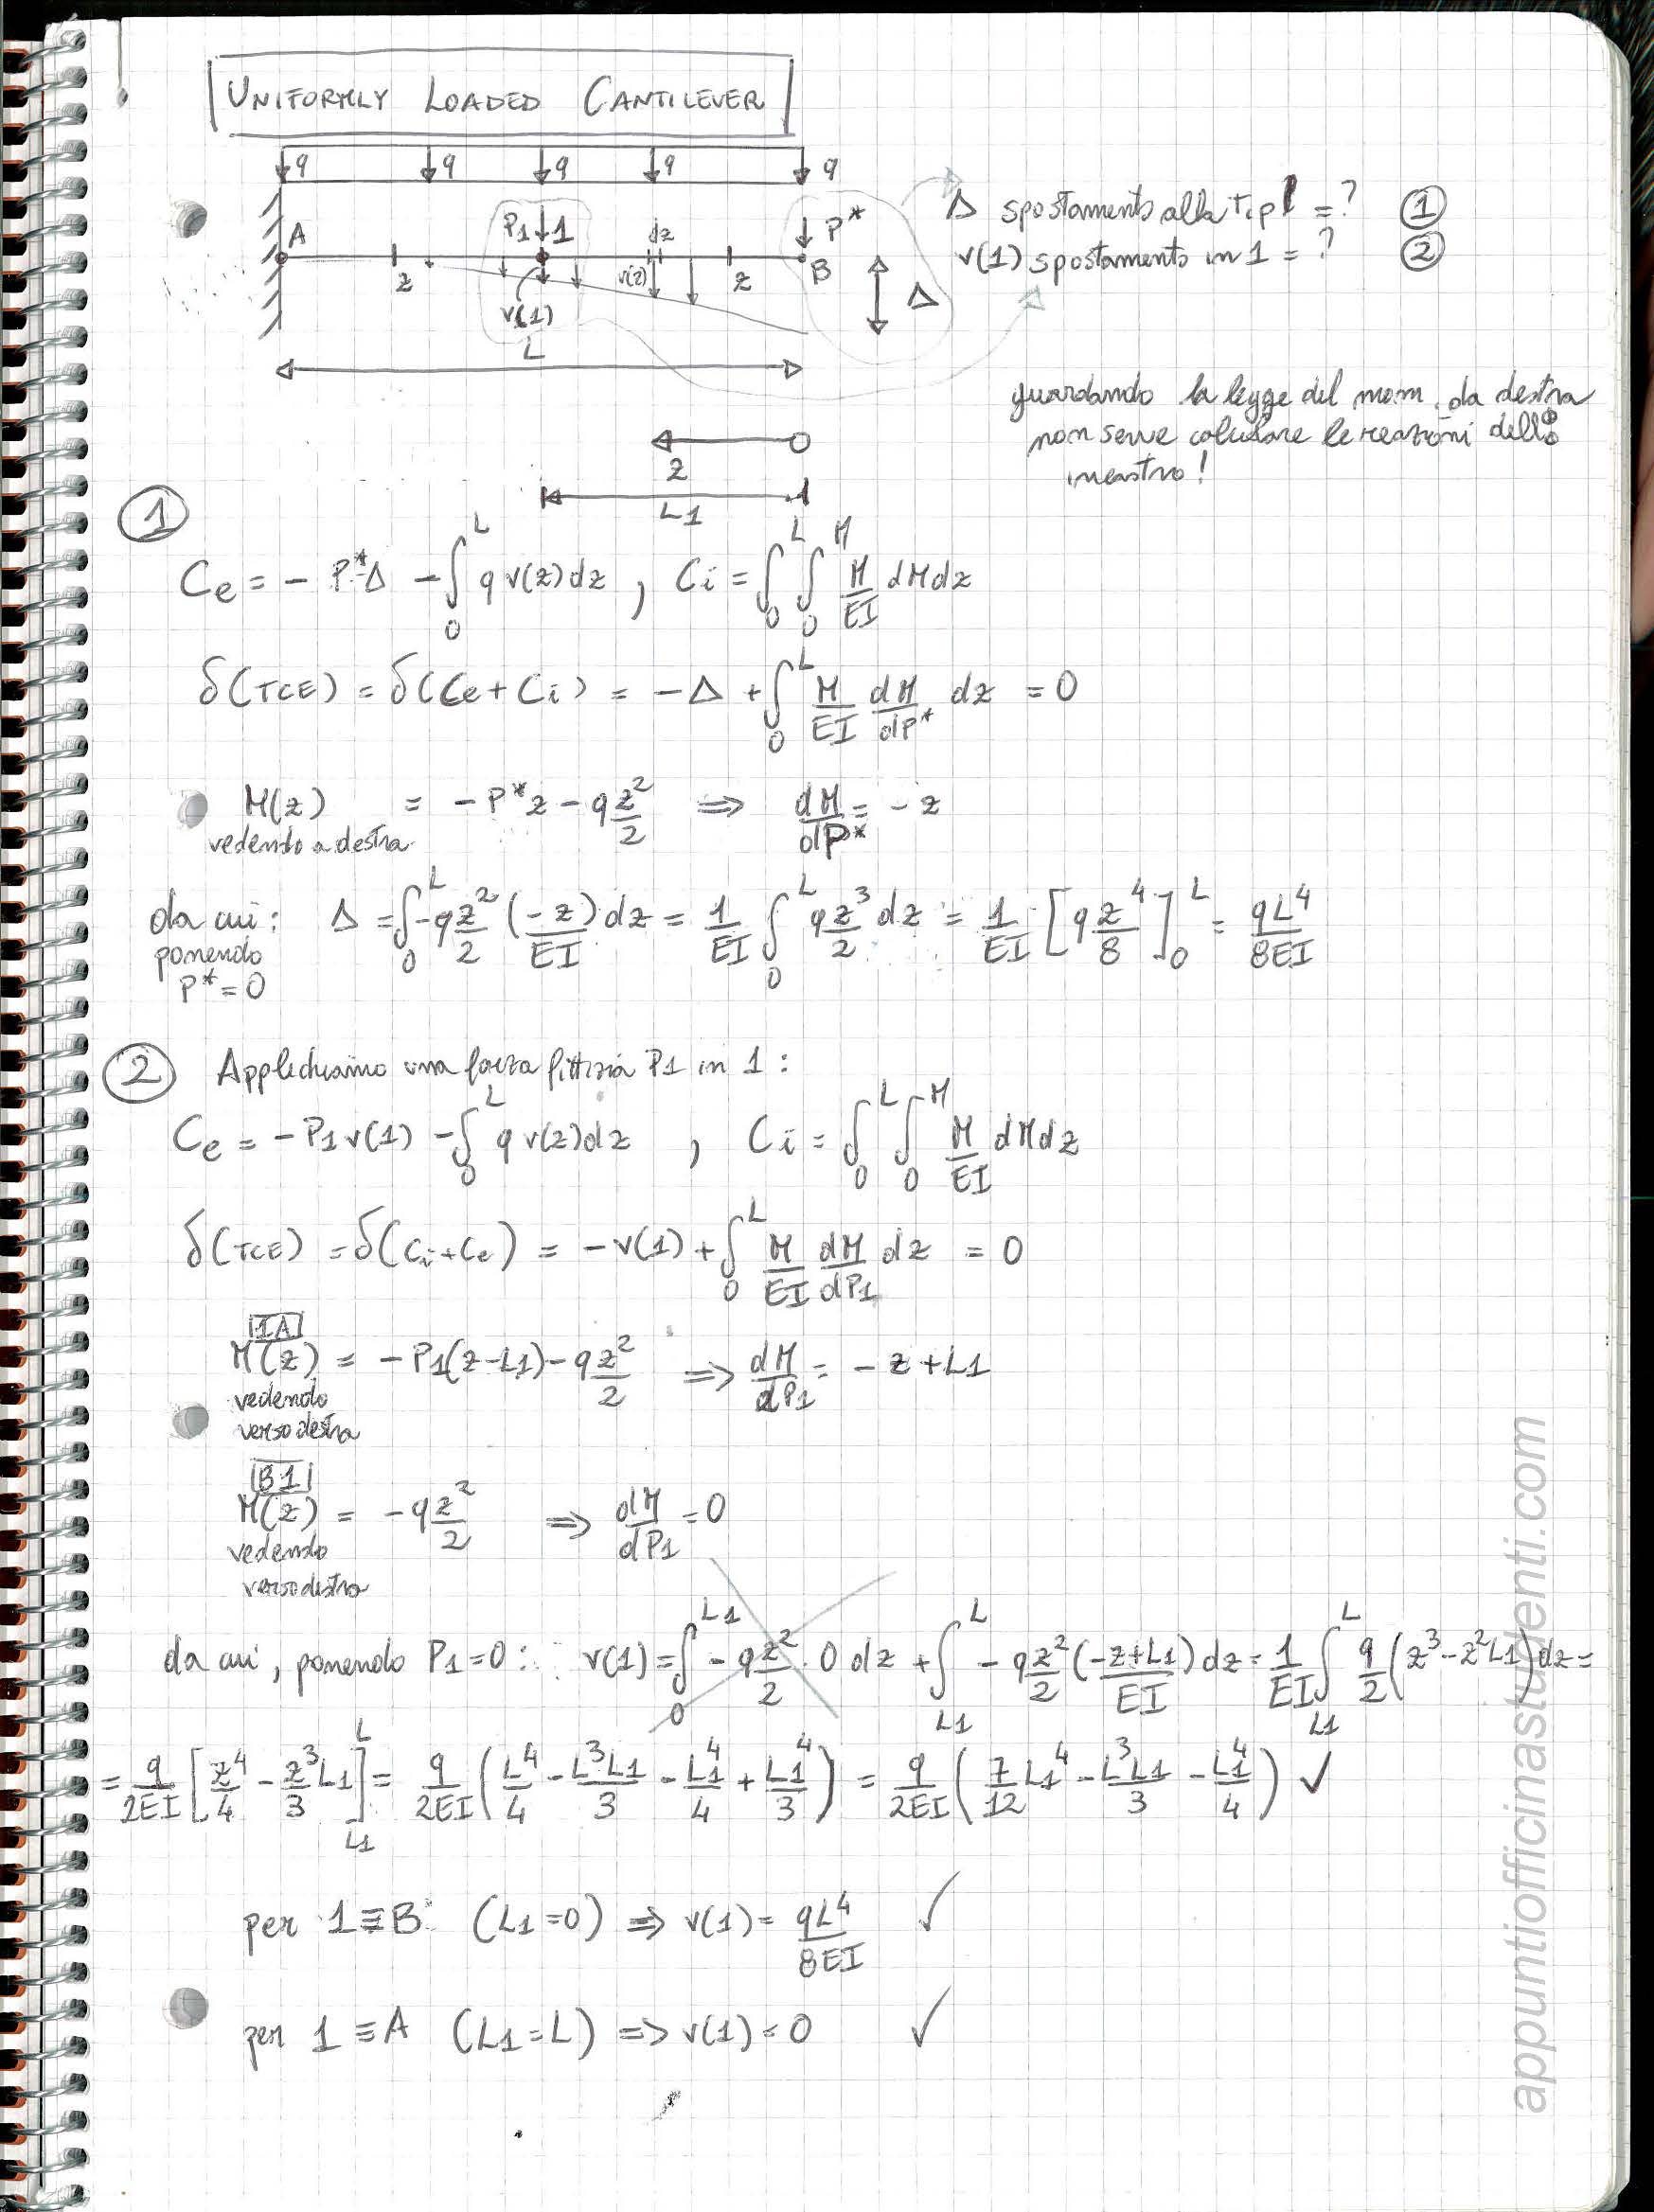 UNIFORMLY LOADED CANTILEVER
q q q q q
A P1 1 dz P* B
z v(z) z Δ
v(1)
L
Δ spostamento alla tip = ? 1
v(1) spostamento in 1 = ? 2
guardando la legge del mom. da destra
non serve calcolare le reazioni dell'
incastro!
z
L1
1
Ce = - P*Δ - ∫₀ᴸ q v(z) dz , Ci = ∫₀ᴸ ∫₀ᴹ M/EI dM dz
δ(TCE) = δ(Ce + Ci) = - Δ + ∫₀ᴸ M/EI dM/dP* dz = 0
M(z) = - P*z - q z²/2 ⇒ dM/dP* = - z
vedendo a destra
da cui: Δ = ∫₀ᴸ -q z²/2 (-z)/EI dz = 1/EI ∫₀ᴸ q z³/2 dz = 1/EI [q z⁴/8]₀ᴸ = qL⁴/8EI
ponendo
P* = 0
2 Applichiamo una forza fittizia P1 in 1 :
Ce = - P1 v(1) - ∫₀ᴸ q v(z) dz , Ci = ∫₀ᴸ ∫₀ᴹ M/EI dM dz
δ(TCE) = δ(Ci + Ce) = - v(1) + ∫₀ᴸ M/EI dM/dP1 dz = 0
|1A|
M(z) = - P1(z-L1) - q z²/2 ⇒ dM/dP1 = - z + L1
vedendo
verso destra
|B1|
M(z) = - q z²/2 ⇒ dM/dP1 = 0
vedendo
verso destra
da cui, ponendo P1 = 0 : v(1) = ∫₀^L1 - q z²/2 · 0 dz + ∫_L1^L - q z²/2 (-z+L1)/EI dz = 1/EI ∫_L1^L q/2 (z³ - z²L1) dz =
= q/2EI [z⁴/4 - z³/3 L1]_L1^L = q/2EI (L⁴/4 - L³L1/3 - L1⁴/4 + L1⁴/3) = q/2EI (7/12 L1⁴ - L³L1/3 - L1⁴/4) ✓
per 1≡B: (L1=0) ⇒ v(1) = qL⁴/8EI ✓
per 1≡A (L1=L) ⇒ v(1) = 0 ✓
appuntiofficinastudenti.com